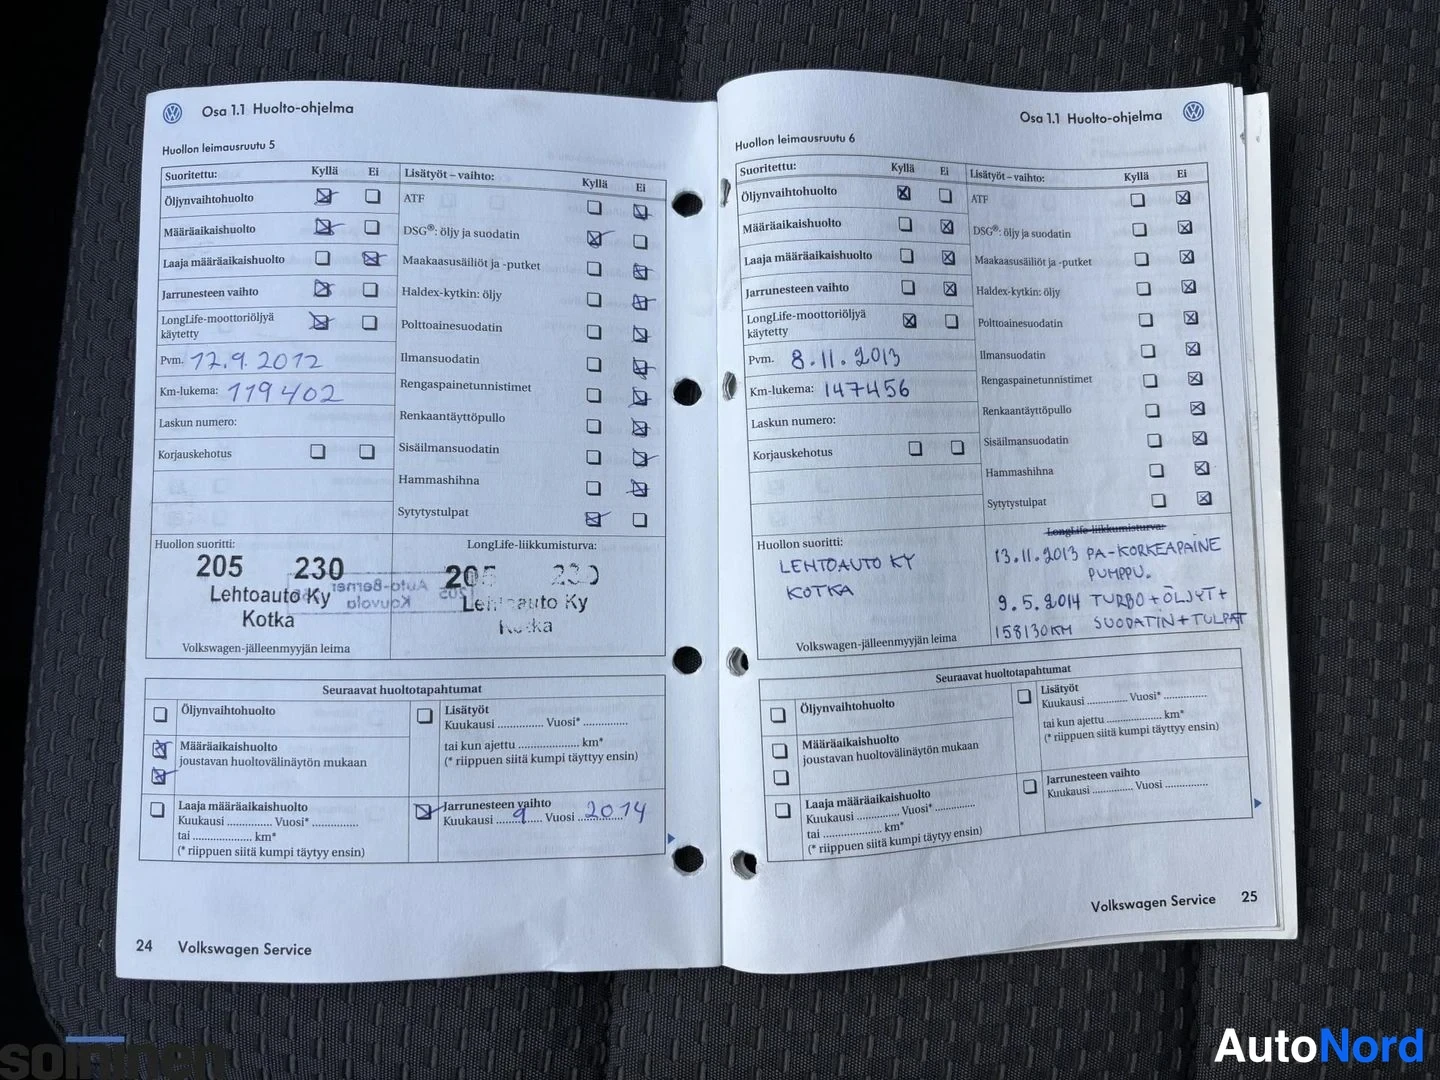 Osa 1.1 Huolto-ohjelma
Huollon leimausruutu 5
Suoritettu: Kyllä Ei
Öljynvaihtohuolto
Määräaikaishuolto
Laaja määräaikaishuolto
Jarrunesteen vaihto
LongLife-moottoriöljyä
käytetty
Pvm. 12.9.2012
Km-lukema: 119402
Laskun numero:
Korjauskehotus
Lisätyöt – vaihto: Kyllä Ei
ATF
DSG®: öljy ja suodatin
Maakaasusäiliöt ja -putket
Haldex-kytkin: öljy
Polttoainesuodatin
Ilmansuodatin
Rengaspainetunnistimet
Renkaantäyttöpullo
Sisäilmansuodatin
Hammashihna
Sytytystulpat
Huollon suoritti:
205 230
Lehtoauto Ky
Kotka
Volkswagen-jälleenmyyjän leima
LongLife-liikkumisturva:
205 230
Lehtoauto Ky
Kotka
Auto-Berner
Kouvola
205
Seuraavat huoltotapahtumat
Öljynvaihtohuolto
Määräaikaishuolto
joustavan huoltovälinäytön mukaan
Laaja määräaikaishuolto
Kuukausi .............. Vuosi* ..............
tai ..................... km*
(* riippuen siitä kumpi täytyy ensin)
Lisätyöt
Kuukausi .............. Vuosi* ..............
tai kun ajettu ..................... km*
(* riippuen siitä kumpi täyttyy ensin)
Jarrunesteen vaihto
Kuukausi 9 Vuosi 2014
24 Volkswagen Service
Osa 1.1 Huolto-ohjelma
Huollon leimausruutu 6
Suoritettu: Kyllä Ei
Öljynvaihtohuolto
Määräaikaishuolto
Laaja määräaikaishuolto
Jarrunesteen vaihto
LongLife-moottoriöljyä
käytetty
Pvm. 8.11.2013
Km-lukema: 147456
Laskun numero:
Korjauskehotus
Lisätyöt – vaihto: Kyllä Ei
ATF
DSG®: öljy ja suodatin
Maakaasusäiliöt ja -putket
Haldex-kytkin: öljy
Polttoainesuodatin
Ilmansuodatin
Rengaspainetunnistimet
Renkaantäyttöpullo
Sisäilmansuodatin
Hammashihna
Sytytystulpat
Huollon suoritti:
LEHTOAUTO KY
KOTKA
Volkswagen-jälleenmyyjän leima
LongLife-liikkumisturva:
13.11.2013 PA-KORKEAPAINE
PUMPPU.
9.5.2014 TURBO+ÖLJYT+
158130KM SUODATIN+TULPAT
Seuraavat huoltotapahtumat
Öljynvaihtohuolto
Määräaikaishuolto
joustavan huoltovälinäytön mukaan
Laaja määräaikaishuolto
Kuukausi .............. Vuosi* ..............
tai ..................... km*
(* riippuen siitä kumpi täytyy ensin)
Lisätyöt
Kuukausi .............. Vuosi* ..............
tai kun ajettu ..................... km*
(* riippuen siitä kumpi täyttyy ensin)
Jarrunesteen vaihto
Kuukausi .............. Vuosi ..............
Volkswagen Service 25
AutoNord